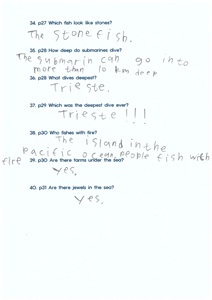 34. p27 Which fish look like stones?
The stonefish.
35. p28 How deep do submarines dive?
The submarin can go into
more than 10 km deep
36. p28 What dives deepest?
Trieste.
37. p29 Which was the deepest dive ever?
Trieste!!!
38. p30 Who fishes with fire?
The island in the
pacific ocean, people fish with
fire
39. p30 Are there farms under the sea?
yes.
40. p31 Are there jewels in the sea?
yes.